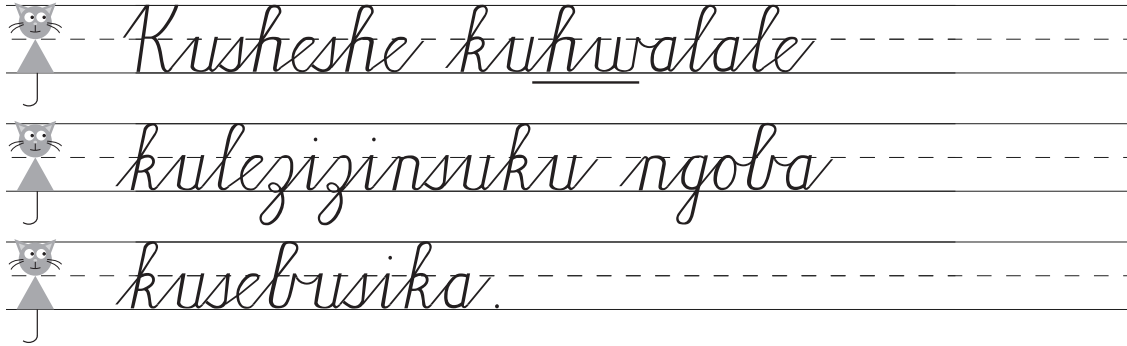 Kusheshe kuhwalale
kulezizinsuku ngoba
kusebusika.